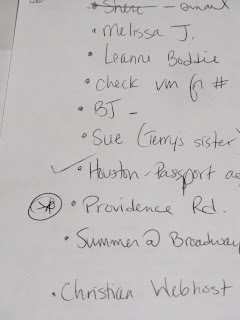 Sheri - email
• Melissa J.
• Leanne Boddie
• check vm for #
• BJ -
• Sue (Terrys sister)
• Houston - Passport
• Providence Rd.
• Summer @ Broadway
• Christian Webhost